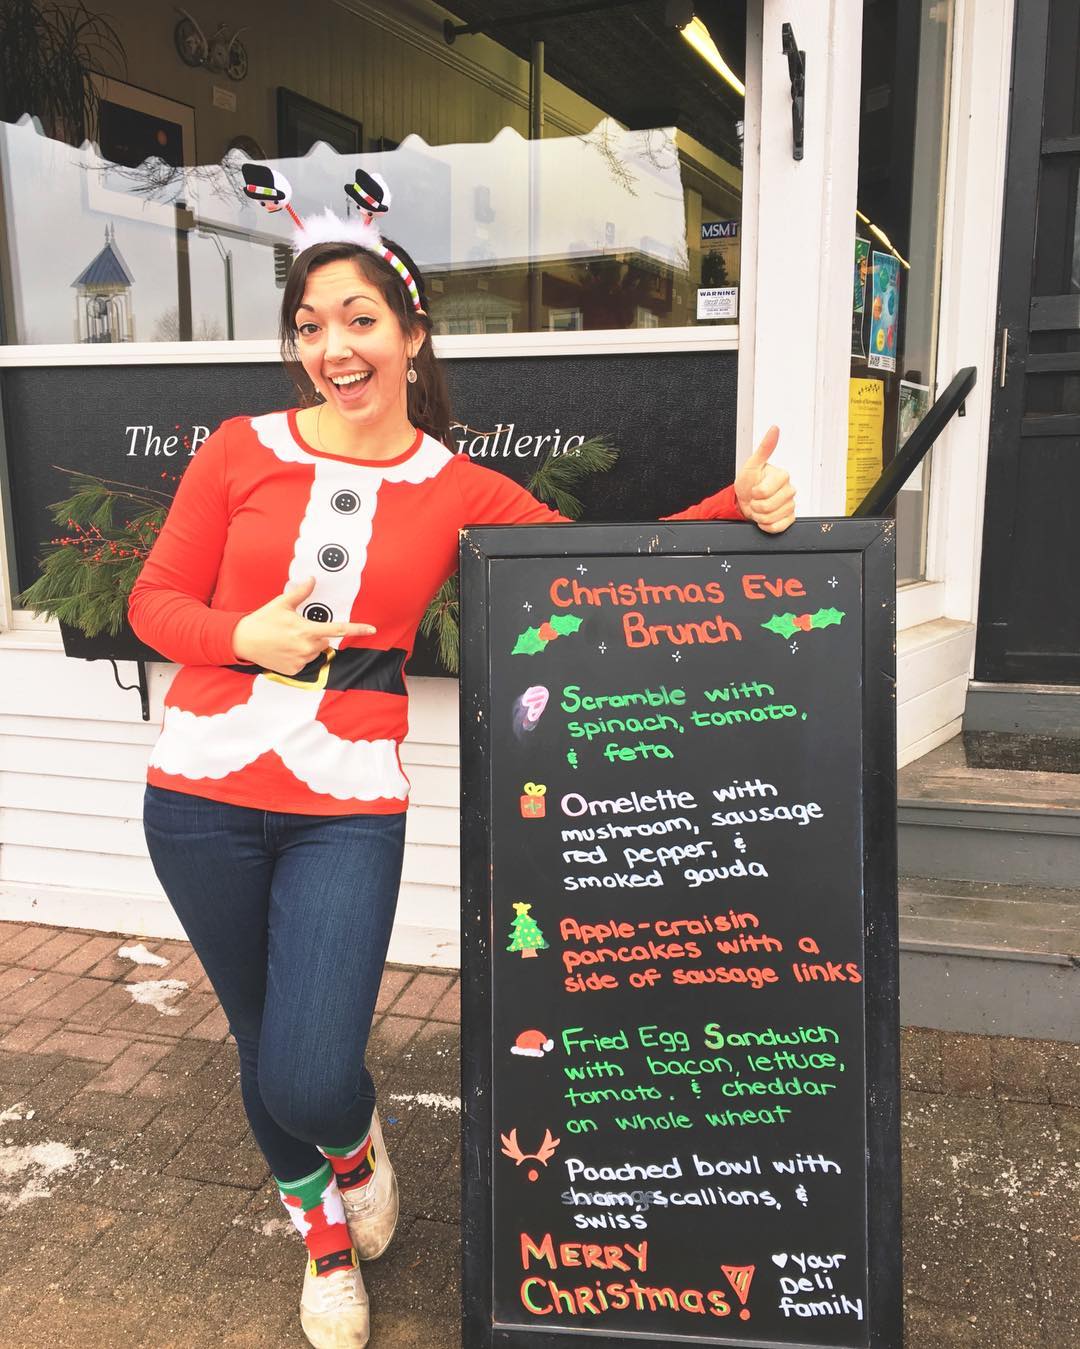 MSMT
WARNING
The B Galleria
Christmas Eve
Brunch
Scramble with
spinach, tomato,
& feta
Omelette with
mushroom, sausage
red pepper, &
smoked gouda
Apple-craisin
pancakes with a
side of sausage links
Fried Egg Sandwich
with bacon, lettuce,
tomato. & cheddar
on whole wheat
Poached bowl with
ham, scallions, &
swiss
MERRY
Christmas!
♥ your
Deli
family